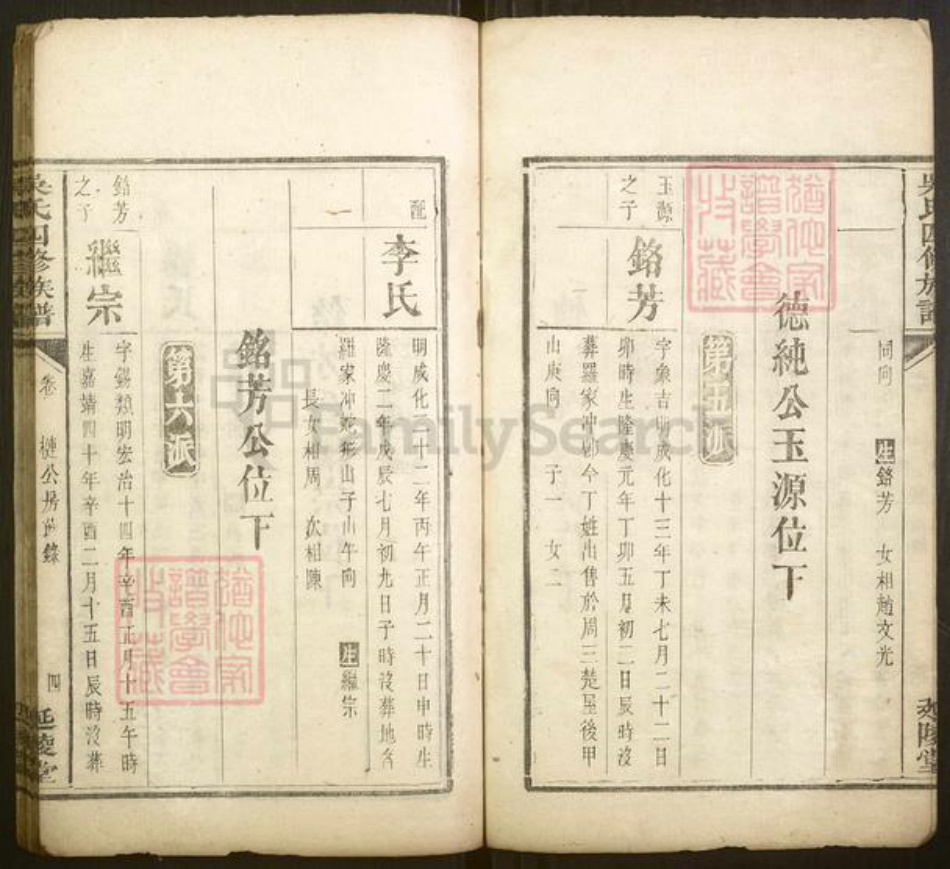 吳氏四修族譜
延陵堂
同向 生銘芳 女相趙文光
德純公玉源位下
第十五派
玉源
之子
銘芳
字象吉明成化十三年丁未七月二十二日
卯時生隆慶元年丁卯五月初二日辰時沒
葬羅家冲卽今丁姓出售於周三楚屋後甲
山庚向 子一 女二
配
李氏
明成化二十二年丙午正月二十日申時生
隆慶二年戊辰七月初九日子時沒葬地名
羅家冲蛇形山子山午向 生繼宗
長女相周 次相陳
銘芳公位下
第十六派
銘芳
之子
繼宗
字錫類明宏治十四年辛酉正月十五午時
生嘉靖四十年辛酉二月十五日辰時沒葬
吳氏四修族譜
卷 槤公房世錄 四
延陵堂
猶他家
譜學會
收藏
猶他家
譜學會
收藏
FamilySearch